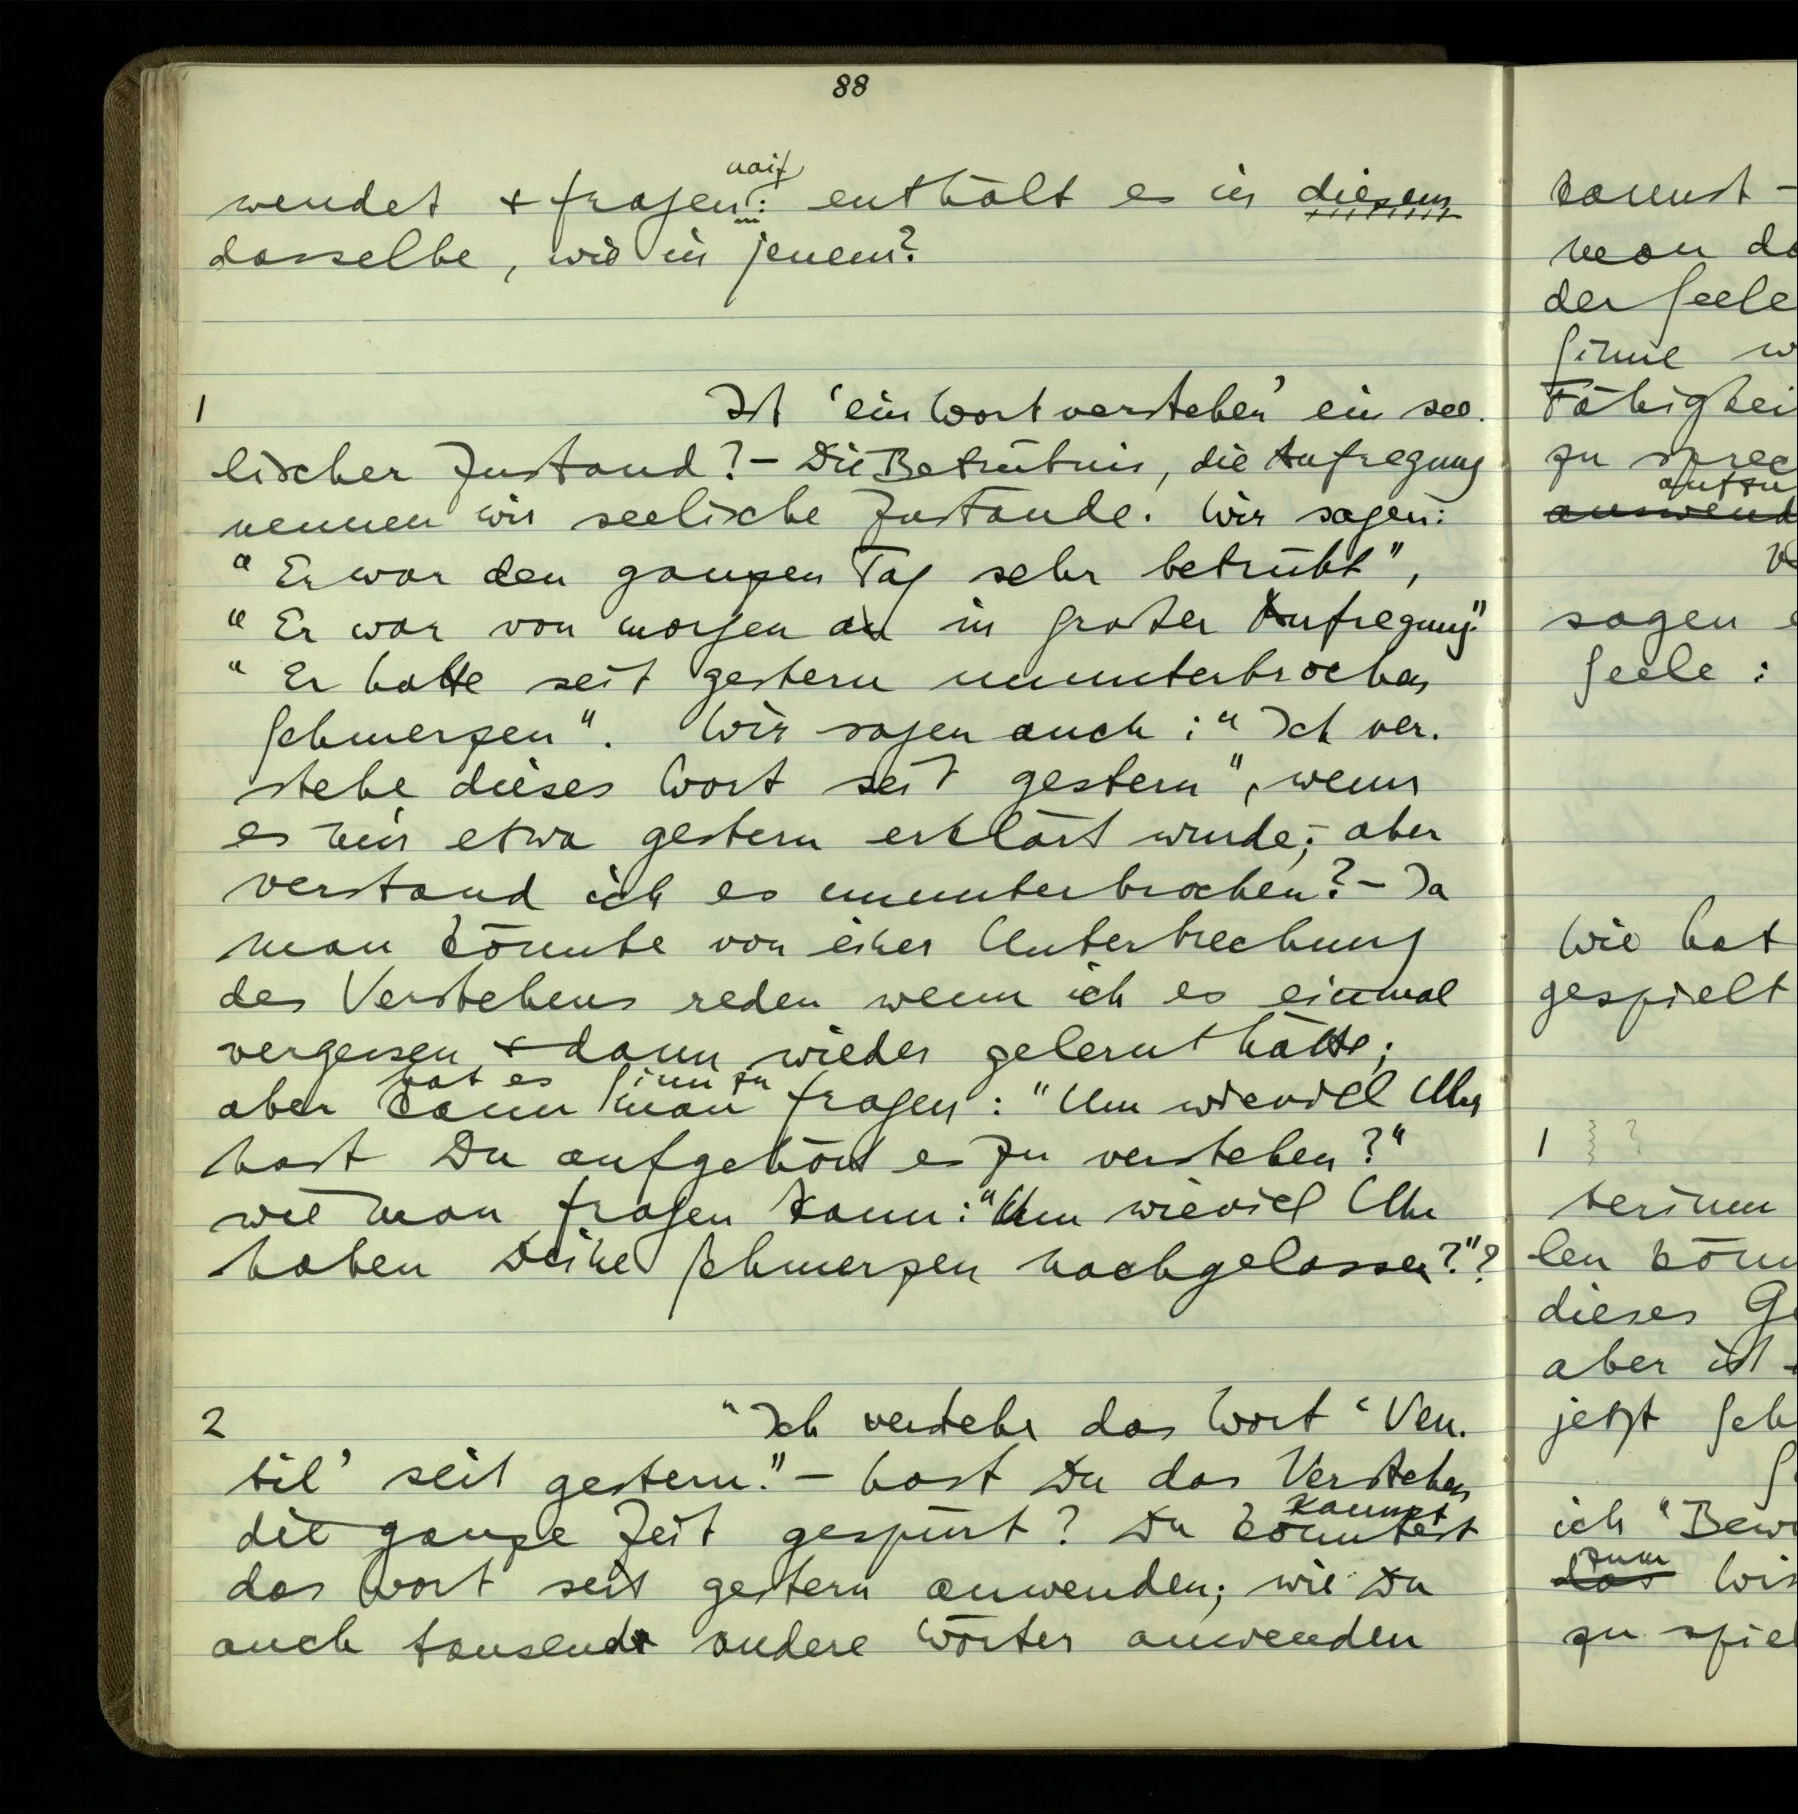 88
naiv
wendet & fragen: enthält es in diesem
dasselbe, wie in jenem?
1
Ist ‘ein Wort verstehen’ ein see-
lischer Zustand? – Die Betrübnis, die Aufregung
nennen wir seelische Zustände. Wir sagen:
“Er war den ganzen Tag sehr betrübt”,
“Er war von morgen an in großer Aufregung”
“Er hatte seit gestern ununterbrochen
Schmerzen”. Wir sagen auch: “Ich ver-
stehe dieses Wort seit gestern”, wenn
es mir etwa gestern erklärt wurde; aber
verstand ich es ununterbrochen? – Ja
man könnte von einer Unterbrechung
des Verstehens reden wenn ich es einmal
vergessen & dann wieder gelernt hätte;
hat es Sinn zu
aber kann man fragen: “Um wieviel Uhr
hast Du aufgehört es zu verstehen?”
wie man fragen kann: “Um wieviel Uhr
haben Deine Schmerzen nachgelassen?”?
2
“Ich verstehe das Wort ‘Ven-
til’ seit gestern.” – hast Du das Verstehen
kannst
die ganze Zeit gespürt? Du könntest
das Wort seit gestern anwenden; wie Du
auch tausend andere Wörter anwenden
kannst –
man da
der Seele
Sinne w
Fähigkei
zu sprec
aufzu
auswend
sagen e
Seele:
Wie hat
gespielt
1 ?
terinn
len könn
dieses Ge
aber ist
jetzt Sch
ich “Bew
zum
das Wis
zu spiel